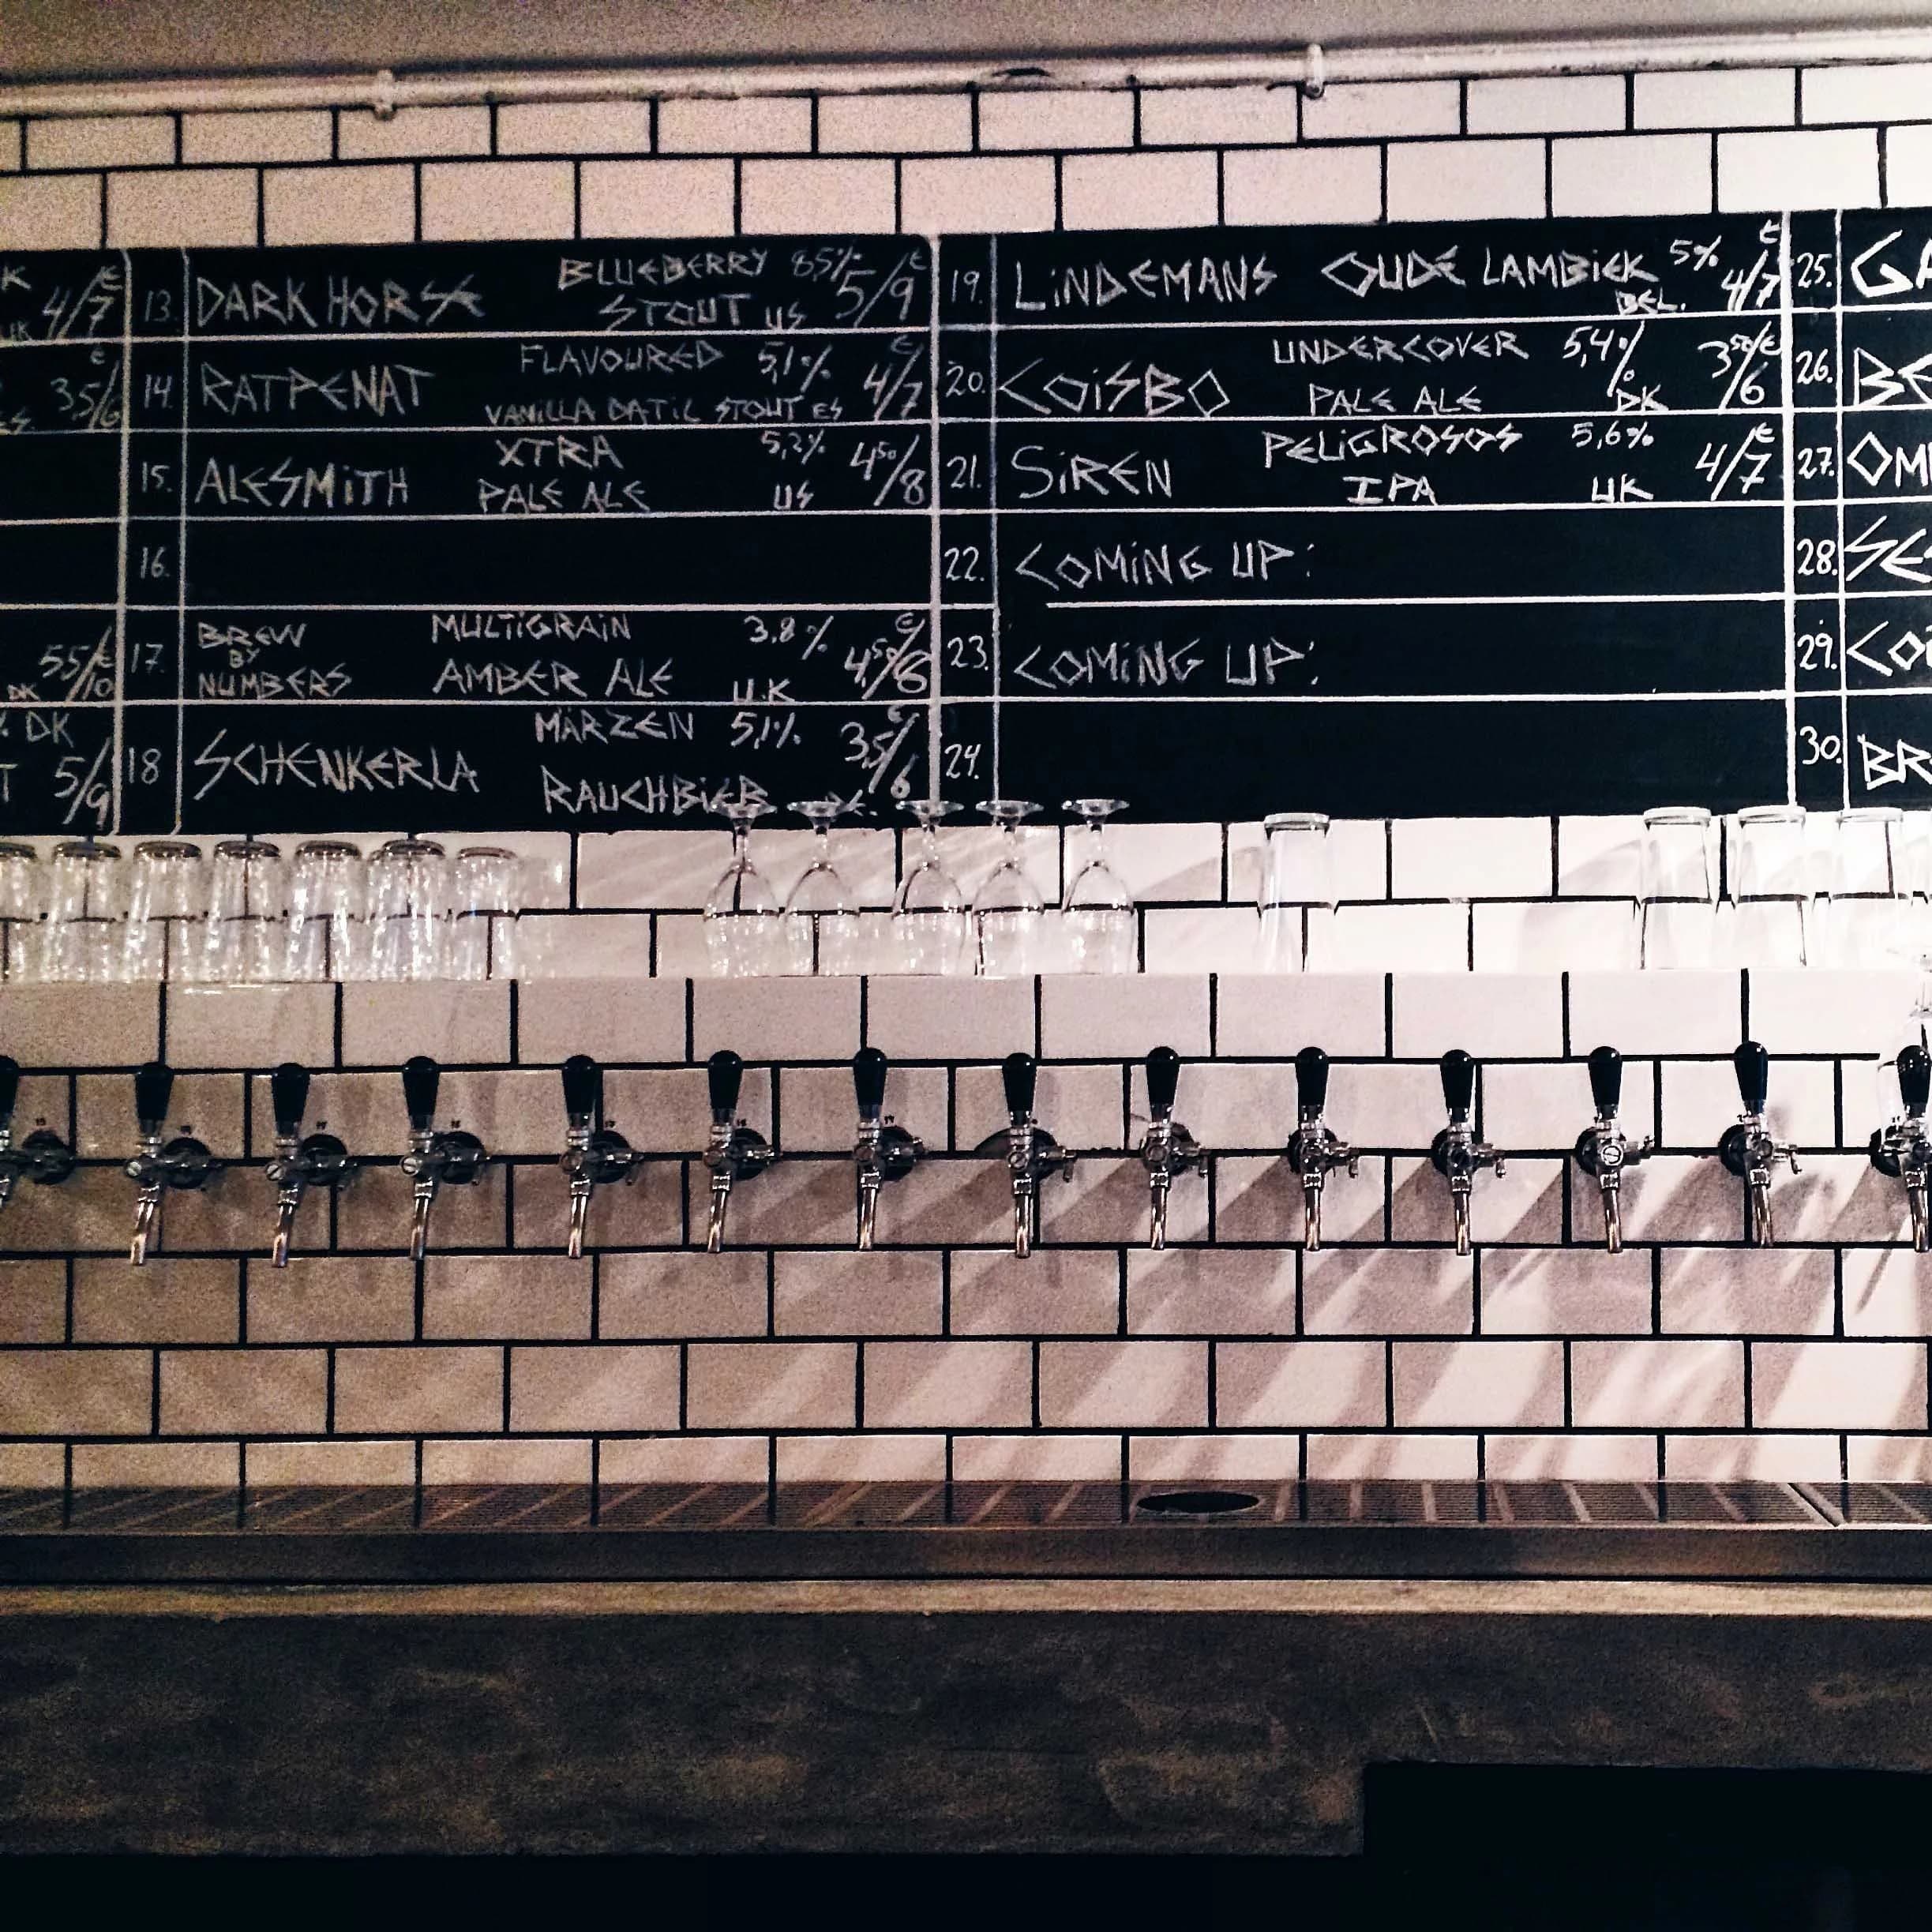 K
4/7 €
UK
3,5/6 €
ES.
5,5/10 €
DK
% DK
T 5/9
13. DARK HORSE BLUEBERRY 8,5% 5/9 €
STOUT US
14. RATPENAT FLAVOURED 5,1% 4/7 €
VANILLA DATIL STOUT ES
15. ALESMITH XTRA 5,2% 4,50/8
PALE ALE US
16.
17. BREW BY NUMBERS MULTIGRAIN 3,8% 4,50/6 €
AMBER ALE U.K
18 SCHENKERLA MÄRZEN 5,1% 3,5/6 €
RAUCHBIER
19. LINDEMANS OUDE LAMBIEK 5% 4/7 €
BEL.
20. COISBO UNDERCOVER 5,4% 3,50/6 €
PALE ALE DK
21. SIREN PELIGROSOS 5,6% 4/7 €
IPA UK
22. COMING UP:
23. COMING UP:
24.
25. GA
26. BE
27. OM
28. SE
29. COI
30. BR